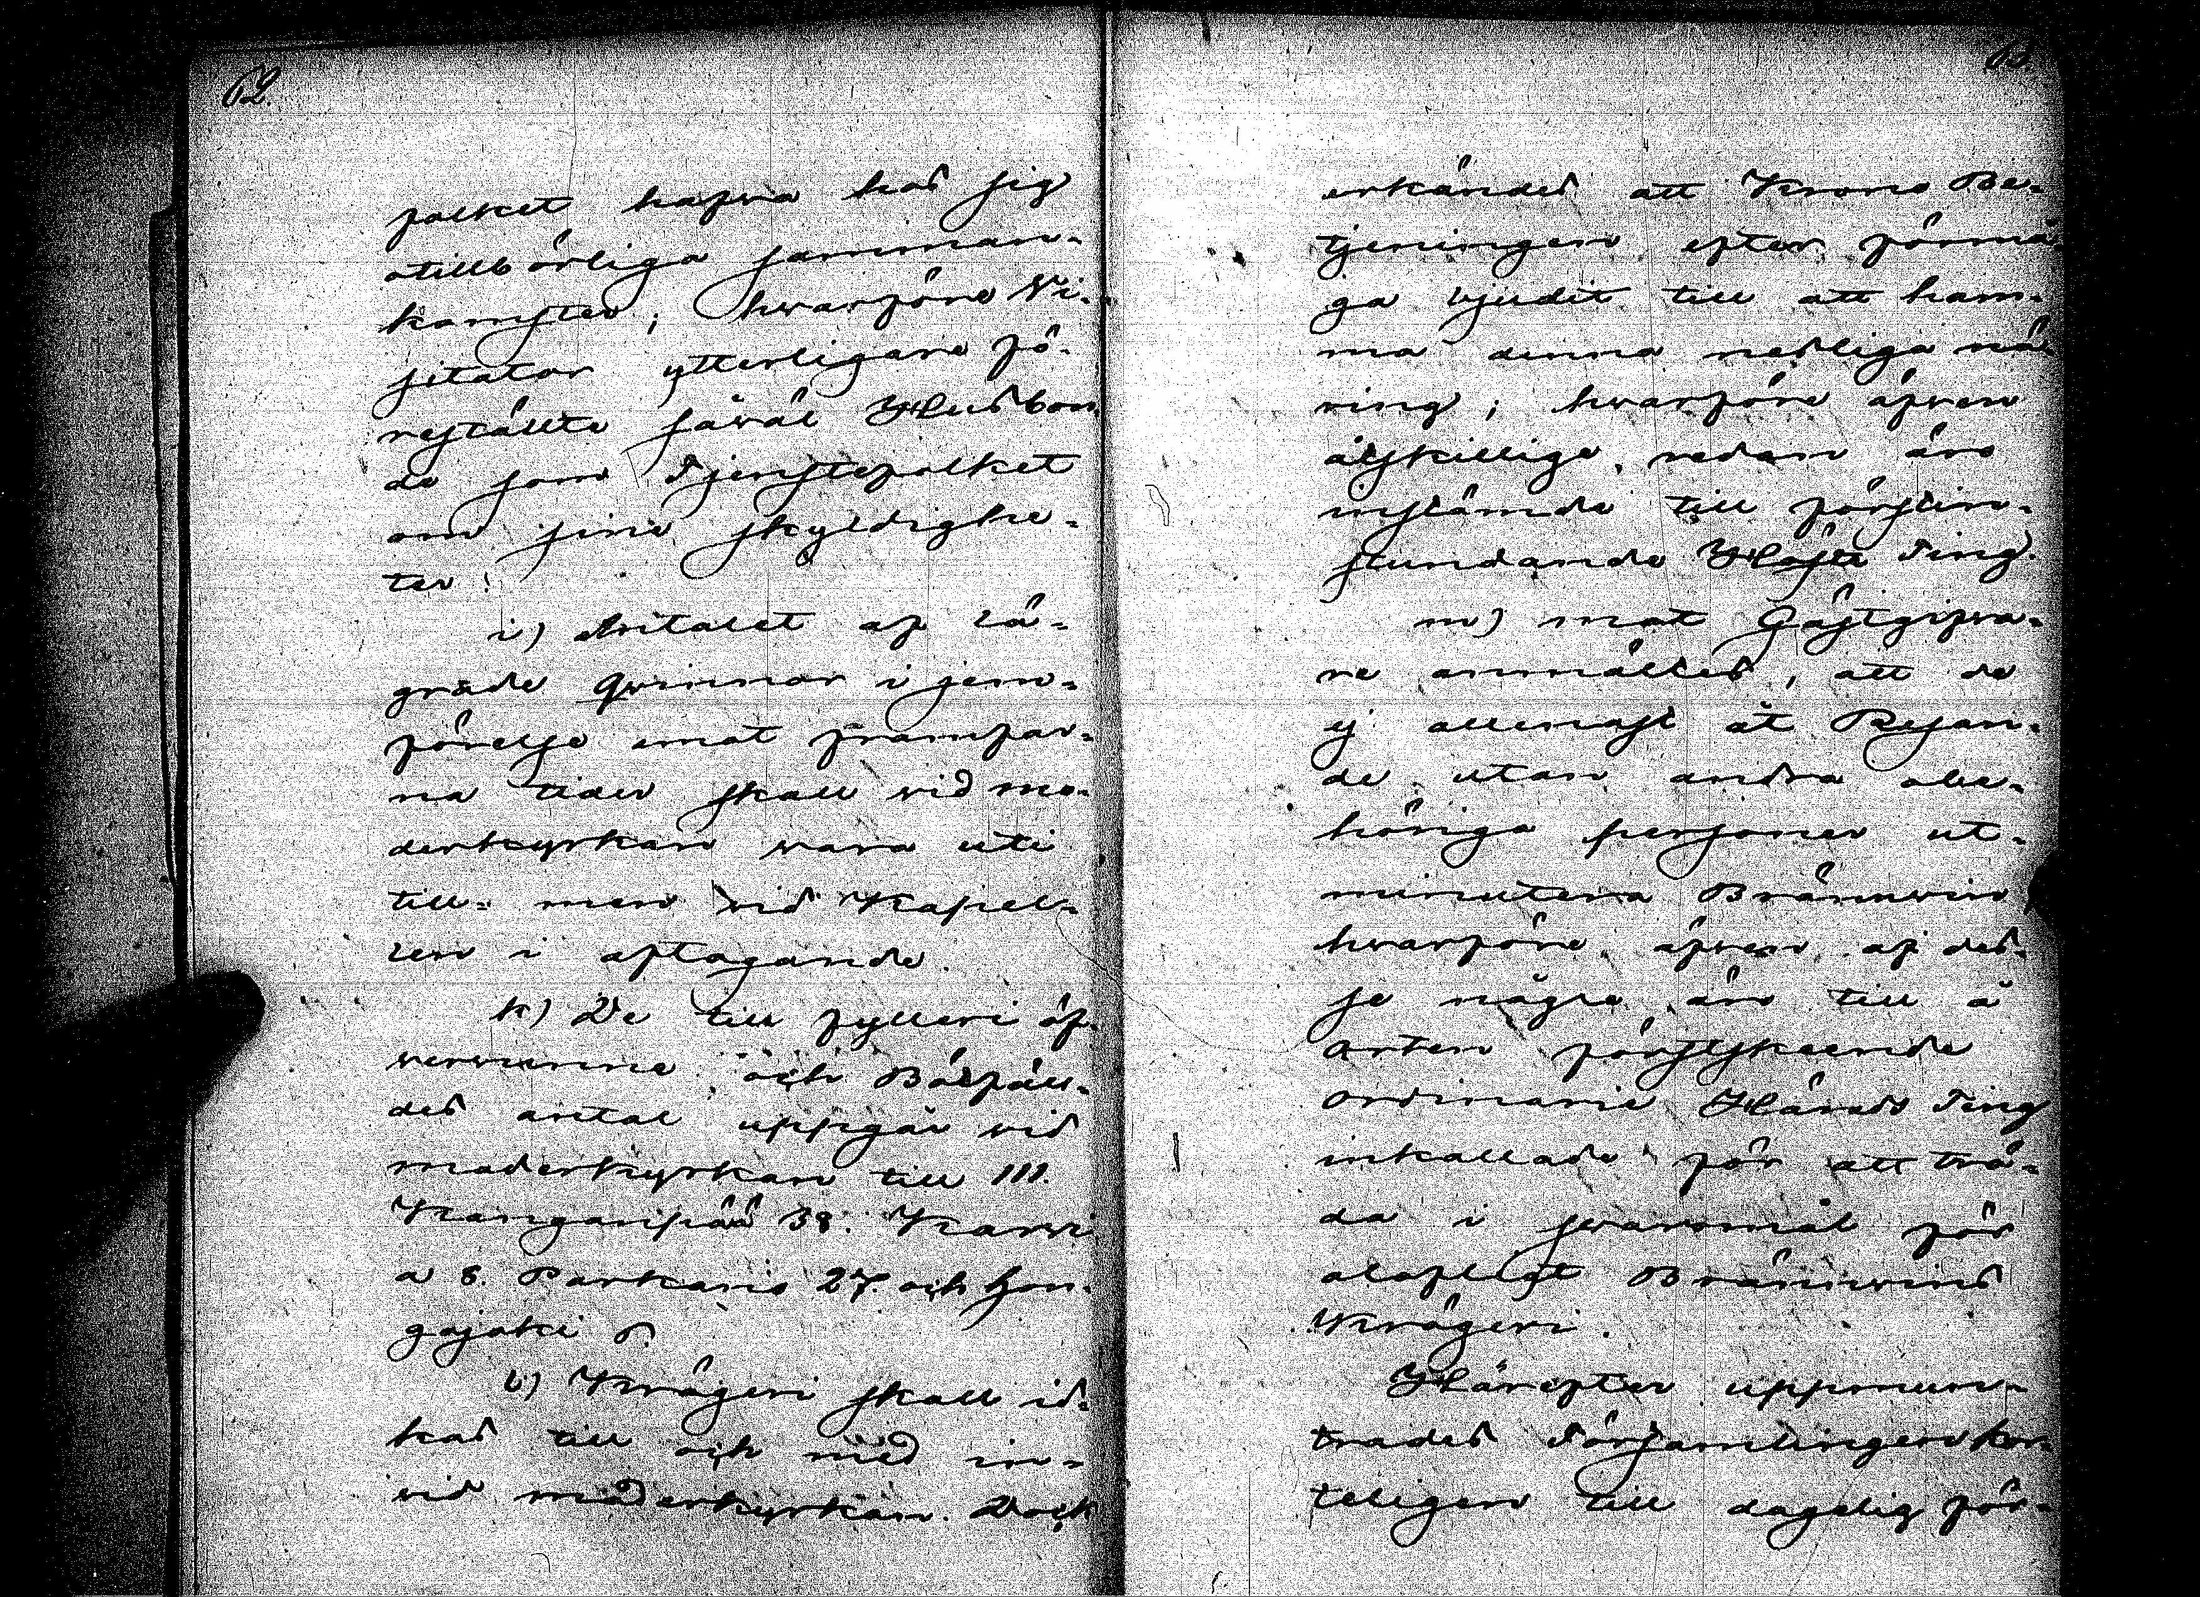 62.
folket hafva hos sig
otillbörliga samman-
komster; hvarföre Vi-
sitator ytterligare fö-
reställte såväl Husbon
de som Tjenstefolket
om sine skyldighe-
ter.
i) Antalet af lä-
grade qvinnor i jem-
förelse emot framfar-
na tider skall vid mo-
derkyrkan vara uti
till- men vid Kapel-
len i aftagande.
k) De till fylleri öf-
vervunne och Bötfäll-
des antal uppgår vid
moderkyrkan till 111.
Kanganpää 38. Karvi
a 8. Parkano 27. och Hon-
gajoki 6.
l) Krögeri skall id-
kas till och med in-
vid moderkyrkan. Dock
63.
erkändes att Krono Be-
tjeningen efter förmå
ga bjudit till att häm-
ma denna nesliga nä-
ring; hvarföre äfven
åtskillige redan äro
instämde till förstin-
stundande Höste Ting.
m) mot Gästgifva-
re anmältes, att de
ej allenast åt Resan-
de utan andra obe-
höriga personer ut-
minutera Brännvin
hvarföre äfven af des-
se några äro till å
orten förstskeende
ordinarie Härads Ting
inkallade för att trä-
da i svaromål för
olofligt Brännvins
Krögeri.
Härefter uppmun-
trades Församlingen hör-
teligen till dagelig för-